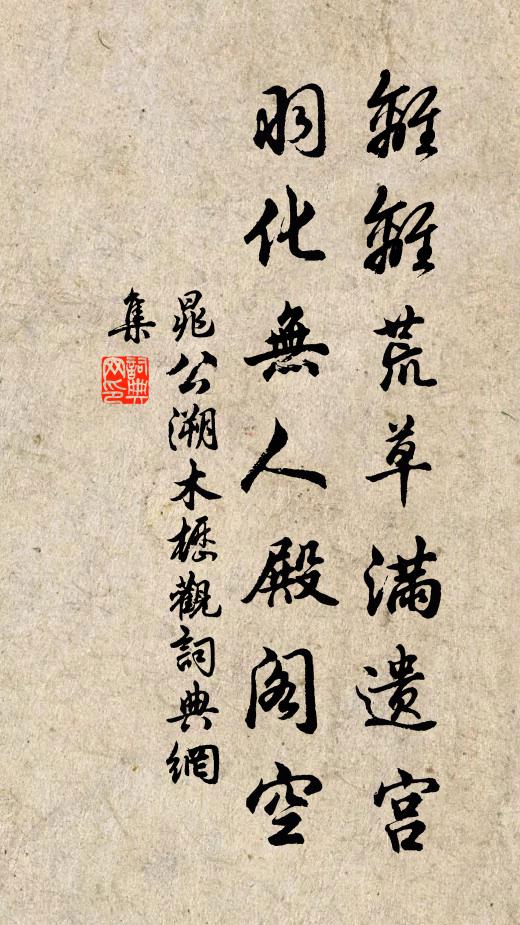 離離荒草滿遺宮
羽化無人殿閣空
晁公溯木櫪觀詞典網
集
詞典
网印